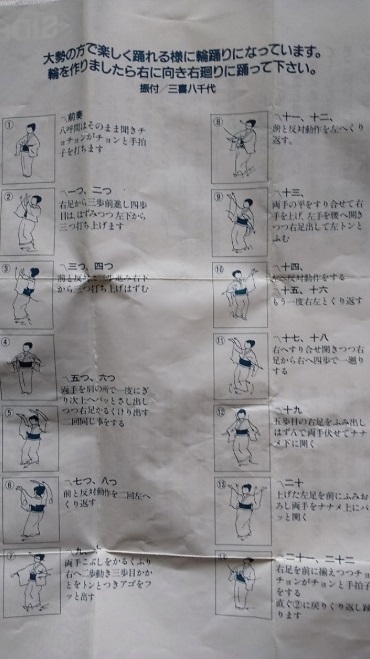 大勢の方で楽しく踊れる様に輪踊りになっています。
輪を作りましたら右に向き右廻りに踊って下さい。
振付／三喜八千代
①
前奏
八呼間はそのまま聞きチ
ョチョンがチョンと手拍
子を打ちます
②
一つ、二つ
右足から三歩前進し四歩
目は、はずみつつ左下から
三つ打ち上げます
③
三つ、四つ
前と反対
進み右下
から三つ打ち上げはずむ
④
⑤
五つ、六つ
両手を肩の所で一度にぎ
り次上へパッとさし出し
つつ右足かるくけり出す
二回同じ事をする
⑥
七つ、八つ
前と反対動作を二回左へ
くり返す
⑦
九、
両手こぶしをかるくふり
右へ二歩動き三歩目かか
とをトンとつきアゴをフ
ッと出す
⑧
十一、十二、
前と反対動作を左へくり
返す。
⑨
十三、
両手の平をすり合せて右
手を上げ、左手を後へ開き
つつ右足出して左トンと
ふむ
⑩
十四、
反対動作をする
十五、十六
もう一度右左とくり返す
⑪
十七、十八
右へすり合せ開きつつ右
足から右へ四歩で一廻り
する
⑫
十九
五歩目の右足をふみ出し
はずんで両手伏せてナナ
メ下に開く
⑬
二十
上げた左足を前にふみお
ろし両手をナナメ上にパ
ッと開く
二十一、二十二
右足を前に揃えつつチョ
チョンがチョンと手拍子
をする
直ぐ②に戻りくり返し踊
ります